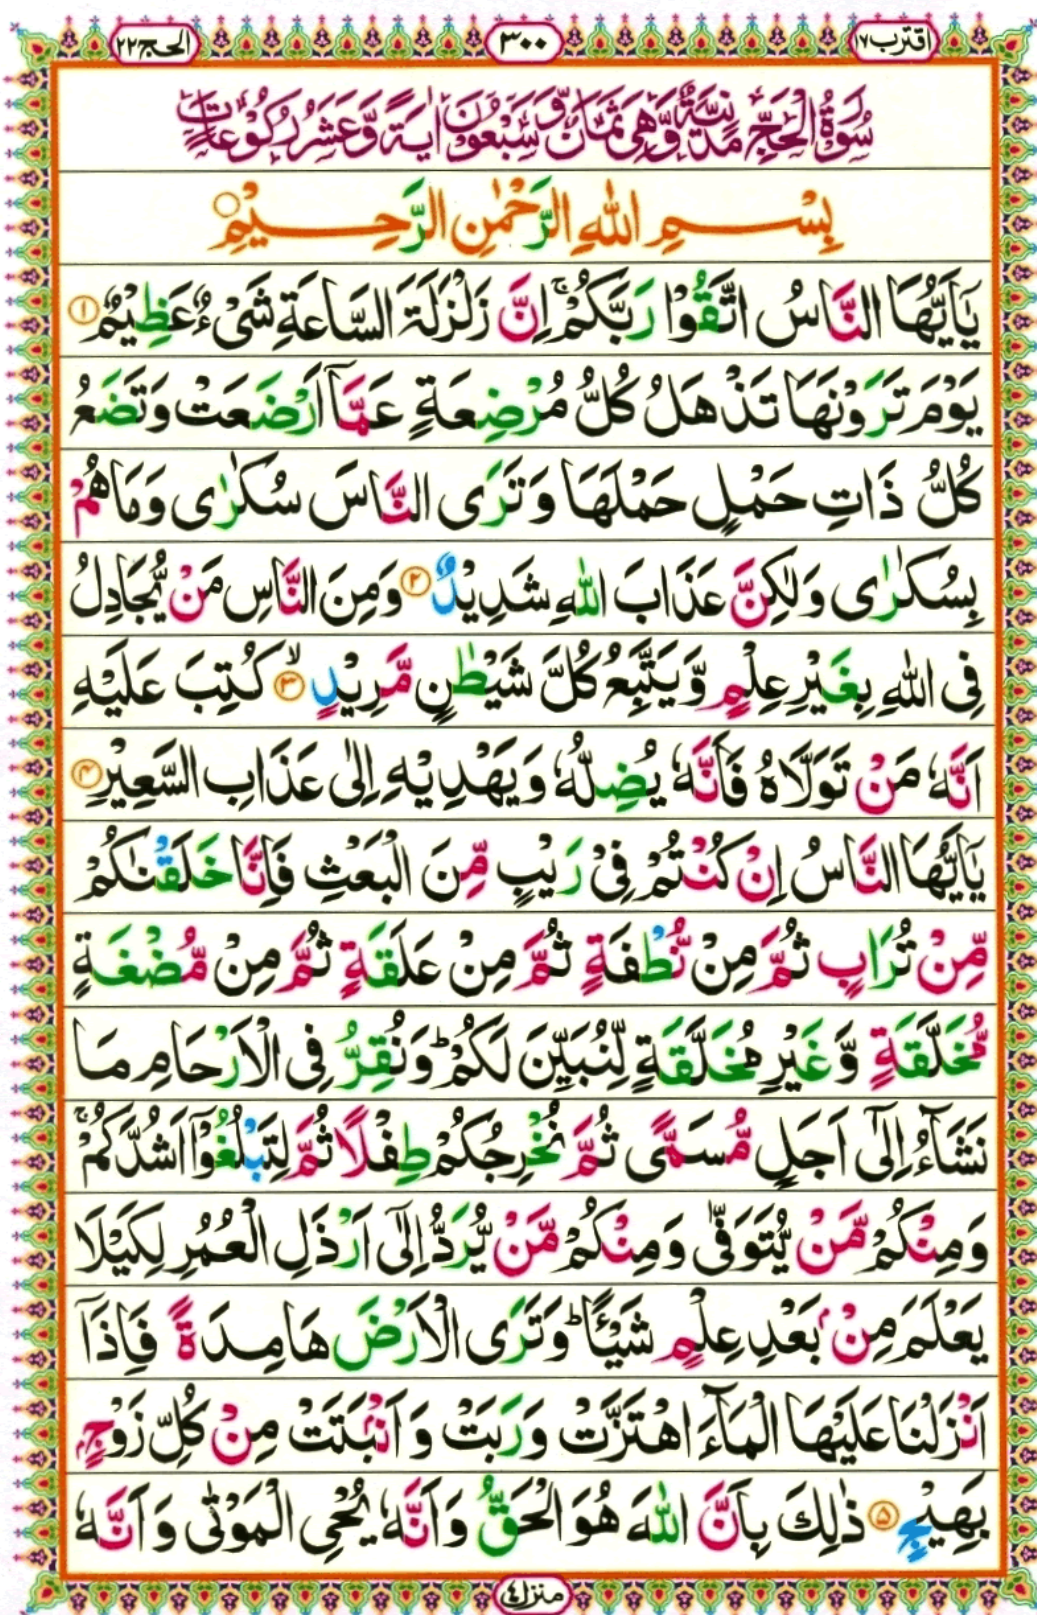 اقترب ١٧
٣٠٠
الحج ٢٢
سُوْرَةُ الْحَجِّ مَدَنِيَّةٌ وَّهِيَ ثَمَانٌ وَّسَبْعُوْنَ اٰيَةً وَّعَشْرُ رُكُوْعَاتٍ
بِسْمِ اللّٰهِ الرَّحْمٰنِ الرَّحِيْمِ○
يٰۤاَيُّهَا النَّاسُ اتَّقُوْا رَبَّكُمْ ۚ اِنَّ زَلْزَلَةَ السَّاعَةِ شَیْءٌ عَظِيْمٌ ①
يَوْمَ تَرَوْنَهَا تَذْهَلُ كُلُّ مُرْضِعَةٍ عَمَّاۤ اَرْضَعَتْ وَتَضَعُ
كُلُّ ذَاتِ حَمْلٍ حَمْلَهَا وَتَرَى النَّاسَ سُكٰرٰى وَمَا هُمْ
بِسُكٰرٰى وَلٰكِنَّ عَذَابَ اللّٰهِ شَدِيْدٌ ② وَمِنَ النَّاسِ مَنْ يُّجَادِلُ
فِى اللّٰهِ بِغَيْرِ عِلْمٍ وَّيَتَّبِعُ كُلَّ شَيْطٰنٍ مَّرِيْدٍ ۙ③ كُتِبَ عَلَيْهِ
اَنَّهٗ مَنْ تَوَلَّاهُ فَاَنَّهٗ يُضِلُّهٗ وَيَهْدِيْهِ اِلٰى عَذَابِ السَّعِيْرِ ④
يٰۤاَيُّهَا النَّاسُ اِنْ كُنْتُمْ فِىْ رَيْبٍ مِّنَ الْبَعْثِ فَاِنَّا خَلَقْنٰكُمْ
مِّنْ تُرَابٍ ثُمَّ مِنْ نُّطْفَةٍ ثُمَّ مِنْ عَلَقَةٍ ثُمَّ مِنْ مُّضْغَةٍ
مُّخَلَّقَةٍ وَّغَيْرِ مُخَلَّقَةٍ لِّنُبَيِّنَ لَكُمْ ؕ وَنُقِرُّ فِى الْاَرْحَامِ مَا
نَشَآءُ اِلٰۤى اَجَلٍ مُّسَمًّى ثُمَّ نُخْرِجُكُمْ طِفْلًا ثُمَّ لِتَبْلُغُوْۤا اَشُدَّكُمْ ۚ
وَمِنْكُمْ مَّنْ يُّتَوَفّٰى وَمِنْكُمْ مَّنْ يُّرَدُّ اِلٰۤى اَرْذَلِ الْعُمُرِ لِكَيْلَا
يَعْلَمَ مِنْۢ بَعْدِ عِلْمٍ شَيْـًٔا ؕ وَتَرَى الْاَرْضَ هَامِدَةً فَاِذَاۤ
اَنْزَلْنَا عَلَيْهَا الْمَآءَ اهْتَزَّتْ وَرَبَتْ وَاَنْۢبَتَتْ مِنْ كُلِّ زَوْجٍۭ
بَهِيْجٍ ⑤ ذٰلِكَ بِاَنَّ اللّٰهَ هُوَ الْحَقُّ وَاَنَّهٗ يُحْىِ الْمَوْتٰى وَاَنَّهٗ
منزل ٤